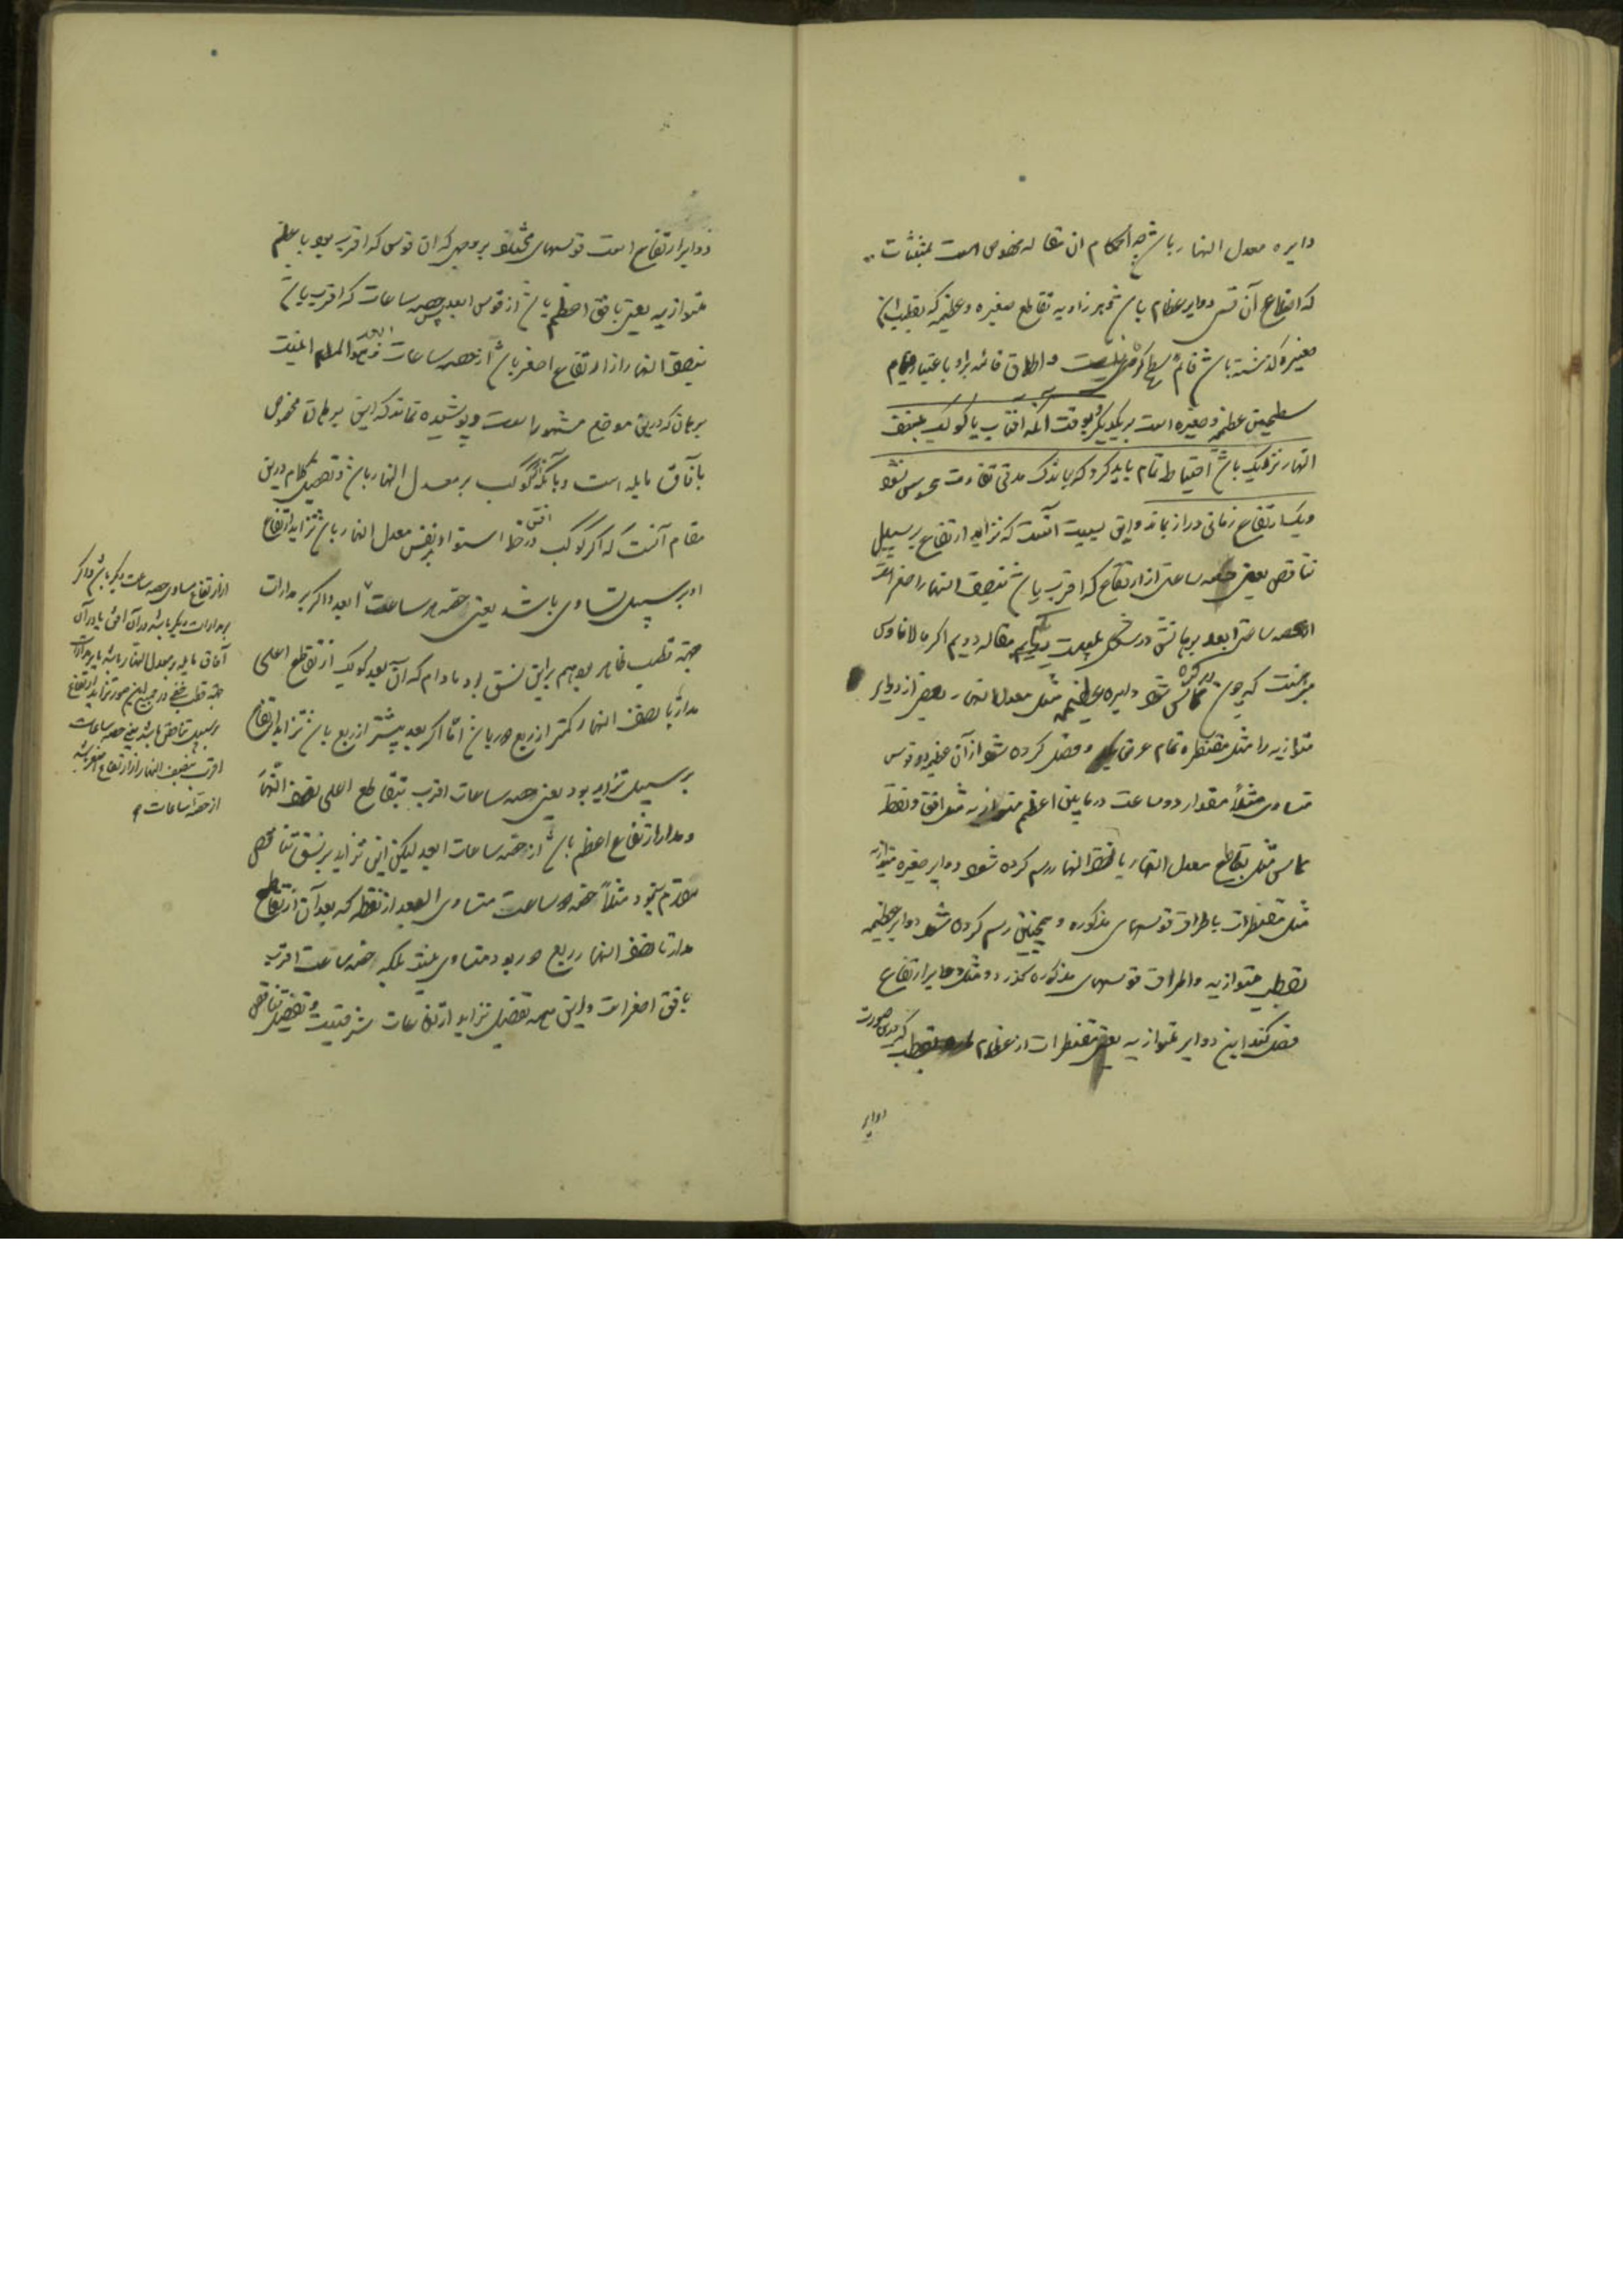 دایره معدل النهار باشد چه احکام ان مقاله مخصوص است بمثلثات
که اضلاع آن قسی دوایر عظام باشد و بر زاویه تقاطع صغیره و عظیمه که بقطبین
صغیره گذشته باشد قائم و اطلاق قائمه برا و باعتبار قیام
سطحین عظیمه و صغیره است بر یکدیگر و بوقت آنکه افتاب یا کوکب بنصف
النهار نزدیک باشد احتیاط تمام باید کرد که باندک مدتی تفاوت محسوس نشود
و یک ارتفاع زمانی دراز بماند و این بسبب آنست که تزاید ارتفاع بر سبیل
تناقص یعنی حصه ساعتی از ارتفاع که اقرب باشد بنصف النهار اصغر است
از حصه ساعتی ابعد برهانش در شکل مقاله دویم اکر مالاناوس
مبرهنست که چون در کره مماس شود دایره عظیمه مثل معدل النهار بعضی از دوایر
متوازیه را مثل مقنطره تمام عرض بلد و فصل کرده شود از آن عظیمه دو قوس
متساوی مثلاً مقدار دو ساعت در مابین اعظم متوازیه مثل افق و نقطه
تماس مثل تقاطع معدل النهار با نصف النهار رسم کرده شود دوایر صغیره متوازیه
مثل مقنطرات باطراف قوسهای مذکوره و همچنین رسم کرده شود دوایر عظیمه
بقطب متوازیه و اطراف قوسهای مذکوره گذرد و مثل دوایر ارتفاع
فصل کند این دوایر متوازیه یعنی مقنطرات از عظام
دوایر
دوایر ارتفاع است قوسهای مختلف بر وجهی که ان قوس که اقرب بود باعظم
متوازیه یعنی بافق اعظم باشد از قوس ابعد پس حصه ساعات که اقرب باشد
بنصف النهار از ارتفاع اصغر باشد از حصه ساعات ابعد و هو المرام اینست
برهان که درین موضع مشهور است و پوشیده نماند که این برهان مخصوص
بآفاق مایله است و بآنکه کوکب بر معدل النهار باشد و تفصیل کلام درین
مقام آنست که اگر کوکب در افق خط استوا و بر نفس معدل النهار باشد تزاید ارتفاع
او بر سبیل تساوی باشد یعنی حصه هر ساعت ابعد و اگر بر مدارات
جهة قطب ظاهر بود هم براین نسق بود مادام که آن بعد کوکب از تقاطع اعلی
مدار با نصف النهار کمتر از ربع دور باشد اما اگر بعد بیشتر از ربع باشد تزاید ارتفاع
بر سبیل تزاید بود یعنی حصه ساعات اقرب بتقاطع اعلی نصف النهار
و مدار از ارتفاع اعظم باشد از حصه ساعات ابعد لیکن این تزاید بر نسق تناقص
مقدم نبود مثلاً حصه دو ساعت متساوی البعد از نقطه که بعد آن از تقاطع
مدار با نصف النهار ربع دور بود متساوی نبود بلکه حصه ساعت اقرب
بافق اصغر است و این همه تفصیل تزاید ارتفاعات شرقیست و تفصیل تناقص
از ارتفاع مساوی حصه ساعت دیگر باشد و اگر
بر مدارات دیگر باشد در آن افق یا در آن
آفاق مایله بر معدل النهار باشد یا بر مدارات
جهة قطب خفی در جمیع این صور تزاید ارتفاع
بر سبیل تناقص باشد یعنی حصه ساعات
اقرب بنصف النهار از ارتفاع اصغر باشد
از حصه ساعات